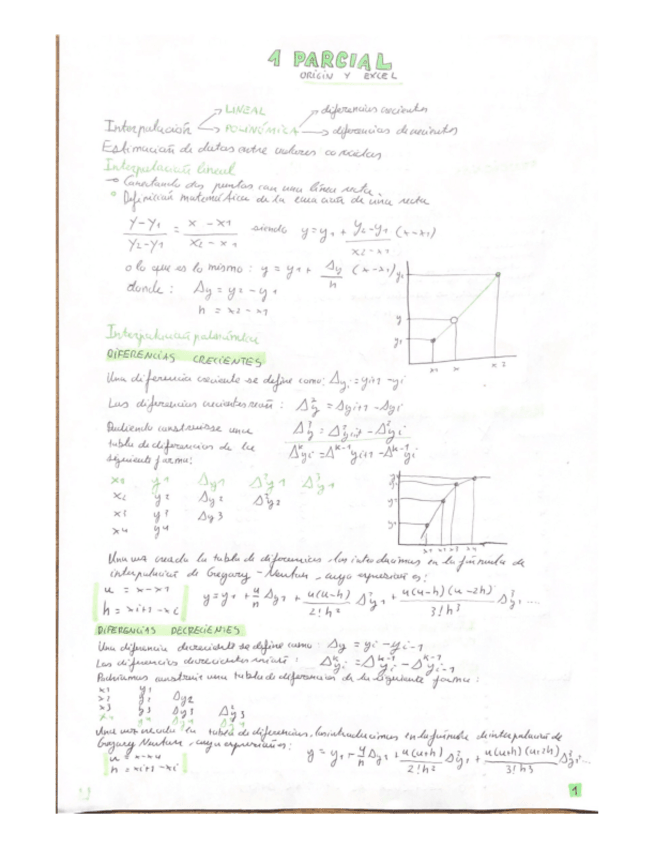 1 PARCIAL
ORIGIN Y EXCEL
Interpolación → LINEAL
→ POLINÓMICA → diferencias crecientes
→ diferencias decrecientes
Estimación de datos entre valores conocidos
Interpolación lineal
→ Conectando dos puntos con una línea recta.
Definición matemática de la ecuación de una recta
y-y1 / y2-y1 = x-x1 / x2-x1 siendo y = y1 + y2-y1 / x2-x1 (x-x1)
o lo que es lo mismo: y = y1 + Δy / h (x-x1)
donde: Δy = y2 - y1
h = x2 - x1
y2
y
y1
x1 x x2
Interpolación polinómica
DIFERENCIAS CRECIENTES
Una diferencia creciente se define como: Δyi = yi+1 - yi
Las diferencias crecientes serán: Δ²yi = Δyi+1 - Δyi
Pudiendo construirse una Δ³yi = Δ²yi+1 - Δ²yi
tabla de diferencias de la Δᵏyi = Δᵏ⁻¹yi+1 - Δᵏ⁻¹yi
siguiente forma:
x1 y1 Δy1 Δ²y1 Δ³y1
x2 y2 Δy2 Δ²y2
x3 y3 Δy3
x4 y4
x1 x2 x3 x4
Una vez creada la tabla de diferencias, las introducimos en la fórmula de
interpolación de Gregory-Newton, cuya expresión es:
u = x-x1
h = xi+1-xi
y = y1 + u/h Δy1 + u(u-h) / 2!h² Δ²y1 + u(u-h)(u-2h) / 3!h³ Δ³y1 ....
DIFERENCIAS DECRECIENTES
Una diferencia decreciente se define como: Δyi = yi - yi-1
Las diferencias decrecientes serán: Δᵏyi = Δᵏ⁻¹yi - Δᵏ⁻¹yi-1
Podríamos construir una tabla de diferencias de la siguiente forma:
x1 y1
x2 y2 Δy2
x3 y3 Δy3 Δ²y3
x4 y4 Δy4
Una vez creada la tabla de diferencias, las introducimos en la fórmula de interpolación de
Gregory Newton, cuya expresión es:
u = x-x4
h = xi+1-xi
1